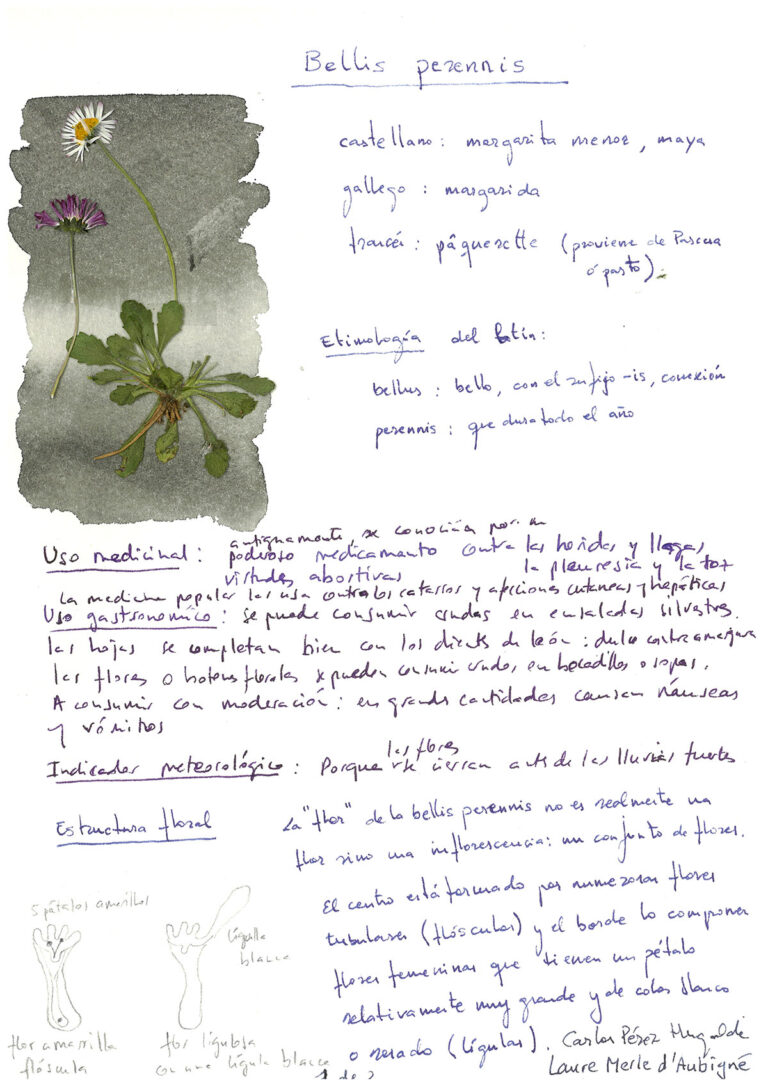 Bellis perennis
castellano: margarita menor, maya
gallego: margarida
francés: pâquerette (proviene de Pascua
ó pasto).
Etimología del latín:
bellus: bello, con el sufijo -is, conexión
perennis: que dura todo el año
antiguamente, se conocían por un
Uso medicinal: poderoso medicamento contra las heridas y llagas,
virtudes abortivas la pleuresia y la tos
La medicina popular las usa contra los catarros y afecciones cutaneas y hepáticas
Uso gastronomico: se puede consumir crudas en ensaladas silvestres.
las hojas se completan bien con los dients de león: dulce contra amargura
las flores o botones florales se pueden consumir crudos, en bocadillos o sopas.
A consumir con moderación: en grands cantidades causan náuseas
y vómitos
las flores
Indicador meteorológico: Porque se cierran antes de las lluvias fuertes
Estructura floral
La "flor" de la bellis perennis no es realmente una
flor sino una inflorescencia: un conjunto de flores.
El centro está formado por numerosas flores
tubulares (flósculos) y el borde lo componen
flores femeninas que tienen un pétalo
relativamente muy grande y de color blanco
o rosado (lígulas).
5 pétalos amarillos
lígula
blanca
flor amarrilla
flóscula
flor lígulosa
con une lígula blance
Carlos Pérez
Laure Merle d'Aubigné